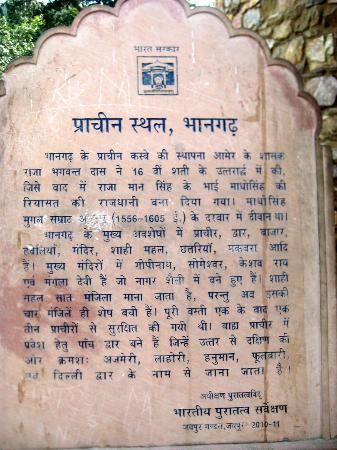 भारत सरकार
प्राचीन स्थल, भानगढ़
भानगढ़ के प्राचीन कस्वे की स्थापना आमेर के शासक
राजा भगवन्त दास ने 16 वीं शती के उत्तरार्द्ध में की,
जिसे बाद में राजा मान सिंह के भाई माधोसिंह की
रियासत की राजधानी बना दिया गया। माधोसिंह
मुगल सम्राट अकबर (1556-1605 ई.) के दरवार में दीवान था।
भानगढ़ के मुख्य अवशेषों में प्राचीर, द्वार, बाजार,
हवेलियां, मंदिर, शाही महल, छतरियाँ, मकवरा आदि
हैं। मुख्य मंदिरों में गोपीनाथ, सोमेश्वर, केशव राय
एवं मंगला देवी हैं जो नागर शैली में बने हुए हैं। शाही
महल सात मंजिला माना जाता है, परन्तु अब इसकी
चार मंजिलें ही शेष बची हैं। पूरी वस्ती एक के बाद एक
तीन प्राचीरों से सुरक्षित की गयी थी। वाह्य प्राचीर में
प्रवेश हेतु पांच द्वार बने हैं जिन्हें उत्तर से दक्षिण की
ओर क्रमशः अजमेरी, लाहोरी, हनुमान, फूलवारी,
एवं दिल्ली द्वार के नाम से जाना जाता है।
अधीक्षण पुरातत्वविद्
भारतीय पुरातत्व सर्वेक्षण
जयपुर मण्डल, जयपुर 2010-11